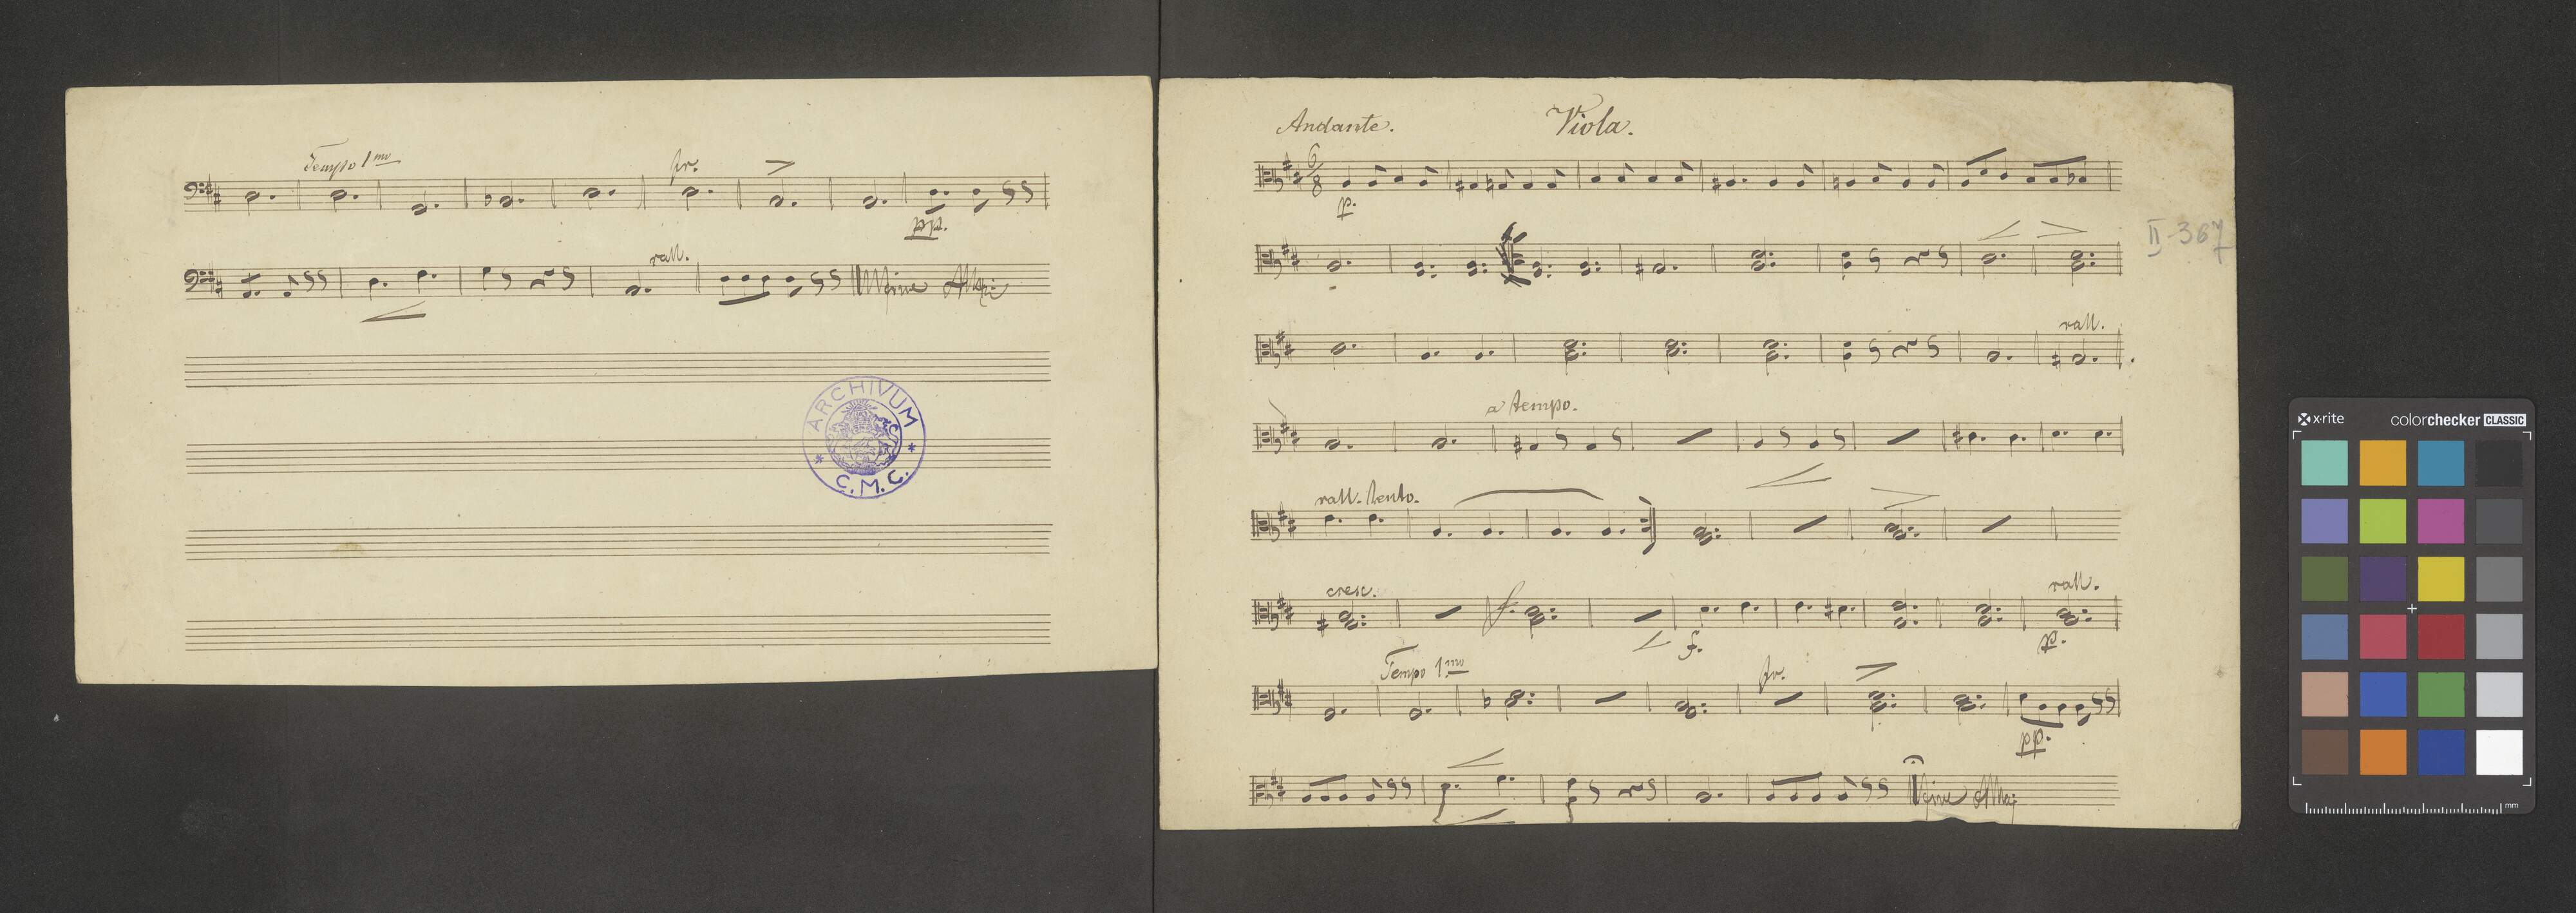 Tempo 1mo
fr.
pp.
rall.
Fine
ARCHIVUM
C. M. C.
Andante. Viola.
6/8
p.
II-367
rall.
a tempo.
rall. lento.
cresc. rall.
f. f. p.
Tempo 1mo fr.
pp.
Fine
x-rite colorchecker CLASSIC
mm